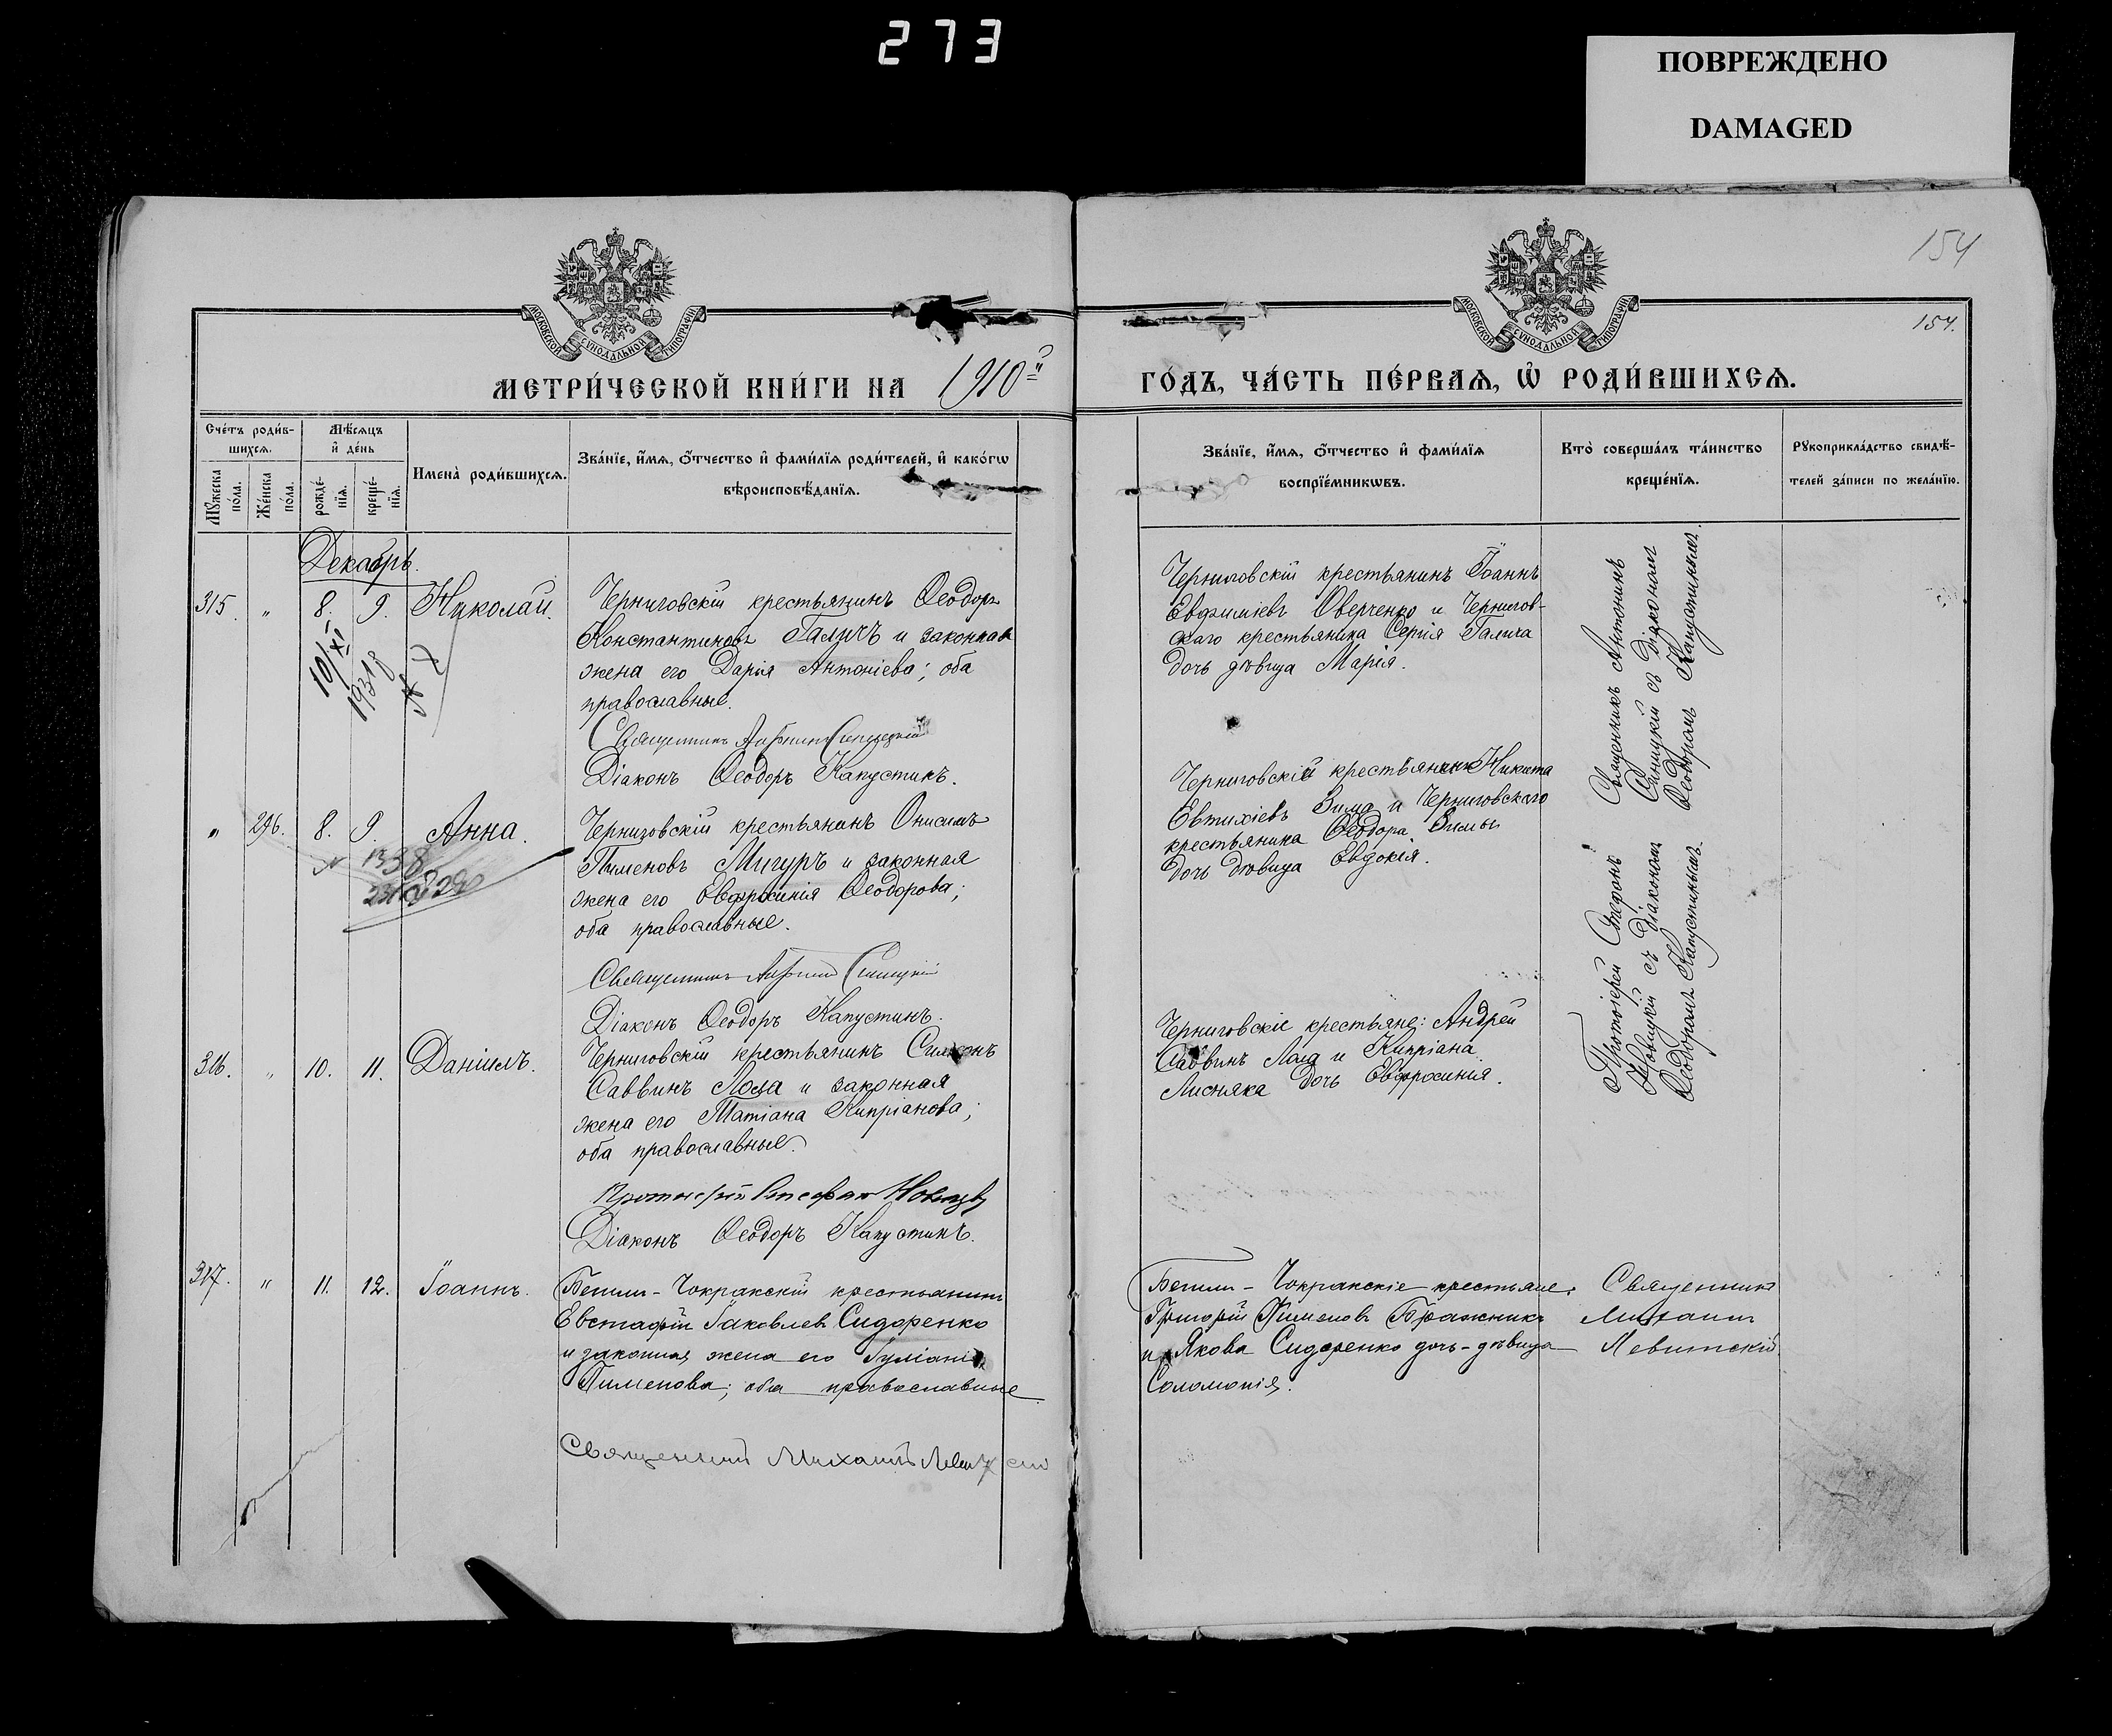 273
ПОВРЕЖДЕНО
DAMAGED
154
154.
МОСКОВСКОЙ СѴНОДАЛЬНОЙ ТИПОГРАФІИ
МОСКОВСКОЙ СѴНОДАЛЬНОЙ ТИПОГРАФІИ
МЕТРИ́ЧЕСКОЙ КНИ́ГИ НА 1910й
ГО́ДЪ, ЧА́СТЬ ПЕ́РВАѦ, Ѡ҆ РОДИ́ВШИХСѦ.
Сче́тъ роди́в-
шихсѧ.
Мѣ́сѧцъ
и҆ де́нь
Мꙋ́жеска
по́ла.
Же́нска
по́ла.
рожде́-
нїѧ.
креще́-
нїѧ.
Имена̀ роди́вшихсѧ.
Зва́нїе, и҆́мѧ, ѻ҆́тчество и҆ фами́лїѧ роди́телей, и҆ како́гѡ
вѣроисповѣ́данїѧ.
Зва́нїе, и҆́мѧ, ѻ҆́тчество и҆ фами́лїѧ
воспрїе́мникѡвъ.
Кто̀ соверша́лъ та́инство
креще́нїѧ.
Рꙋкоприкла́дство свидѣ́-
телей за́писи по жела́нїю.
Декабрь.
315. " 8. 9. Николай.
Черниговскій крестьянинъ Ѳеодоръ
Константиновъ Галичъ и законная
жена его Дарія Антоніева; оба
православные.
Священникъ Антонинъ Синицкій
Діаконъ Ѳеодоръ Капустинъ.
10/XII
1931 8
Черниговскій крестьянинъ Іоаннъ
Евфиміевъ Оверченко и Чернигов-
скаго крестьянина Сергія Галича
дочь дѣвица Марія.
Священникъ Антонинъ
Синицкій съ діакономъ
Ѳеодоромъ Капустинымъ.
" 296. 8. 9. Анна.
Черниговскій крестьянинъ Онисимъ
Пименовъ Мигуръ и законная
жена его Евфросинія Ѳеодорова;
оба православные.
Священникъ Антонинъ Синицкій
Діаконъ Ѳеодоръ Капустинъ.
Черниговскій крестьянинъ Никита
Евтихіевъ Зима и Черниговскаго
крестьянина Ѳеодора Зимы
дочь дѣвица Евдокія.
316. " 10. 11. Даніилъ.
Черниговскій крестьянинъ Симеонъ
Саввинъ Лоза и законная
жена его Татіана Кипріанова;
оба православные.
Протоіерей Стефанъ Новицкій
Діаконъ Ѳеодоръ Капустинъ.
Черниговскіе крестьяне: Андрей
Саввинъ Лоза и Кипріана
Лисняка дочь Евфросинія.
Протоіерей Стефанъ
Новицкій съ діакономъ
Ѳеодоромъ Капустинымъ.
317. " 11. 12. Іоаннъ.
Бешли-Чокракскій крестьянинъ
Евстафій Іаковлевъ Сидоренко
и законная жена его Іуліанія
Пименова; оба православные
Священникъ Михаилъ Левитскій
Бешли-Чокракскіе крестьяне:
Григорій Пименовъ Бражникъ
и Якова Сидоренко дочь-дѣвица
Соломонія.
Священникъ
Михаилъ
Левитскій